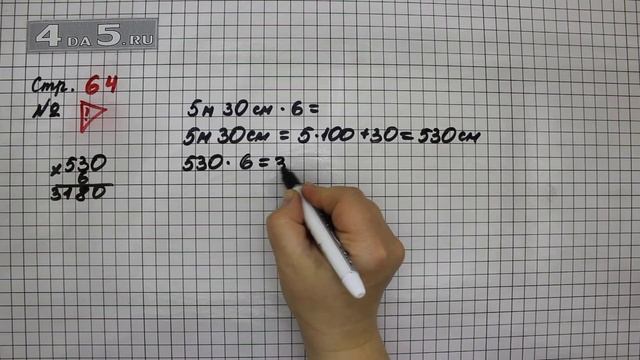 4 DA 5.RU
Стр. 64
№ !
5 м 30 см · 6 =
5 м 30 см = 5 · 100 + 30 = 530 см
530 · 6 = 3
× 530
6
3180